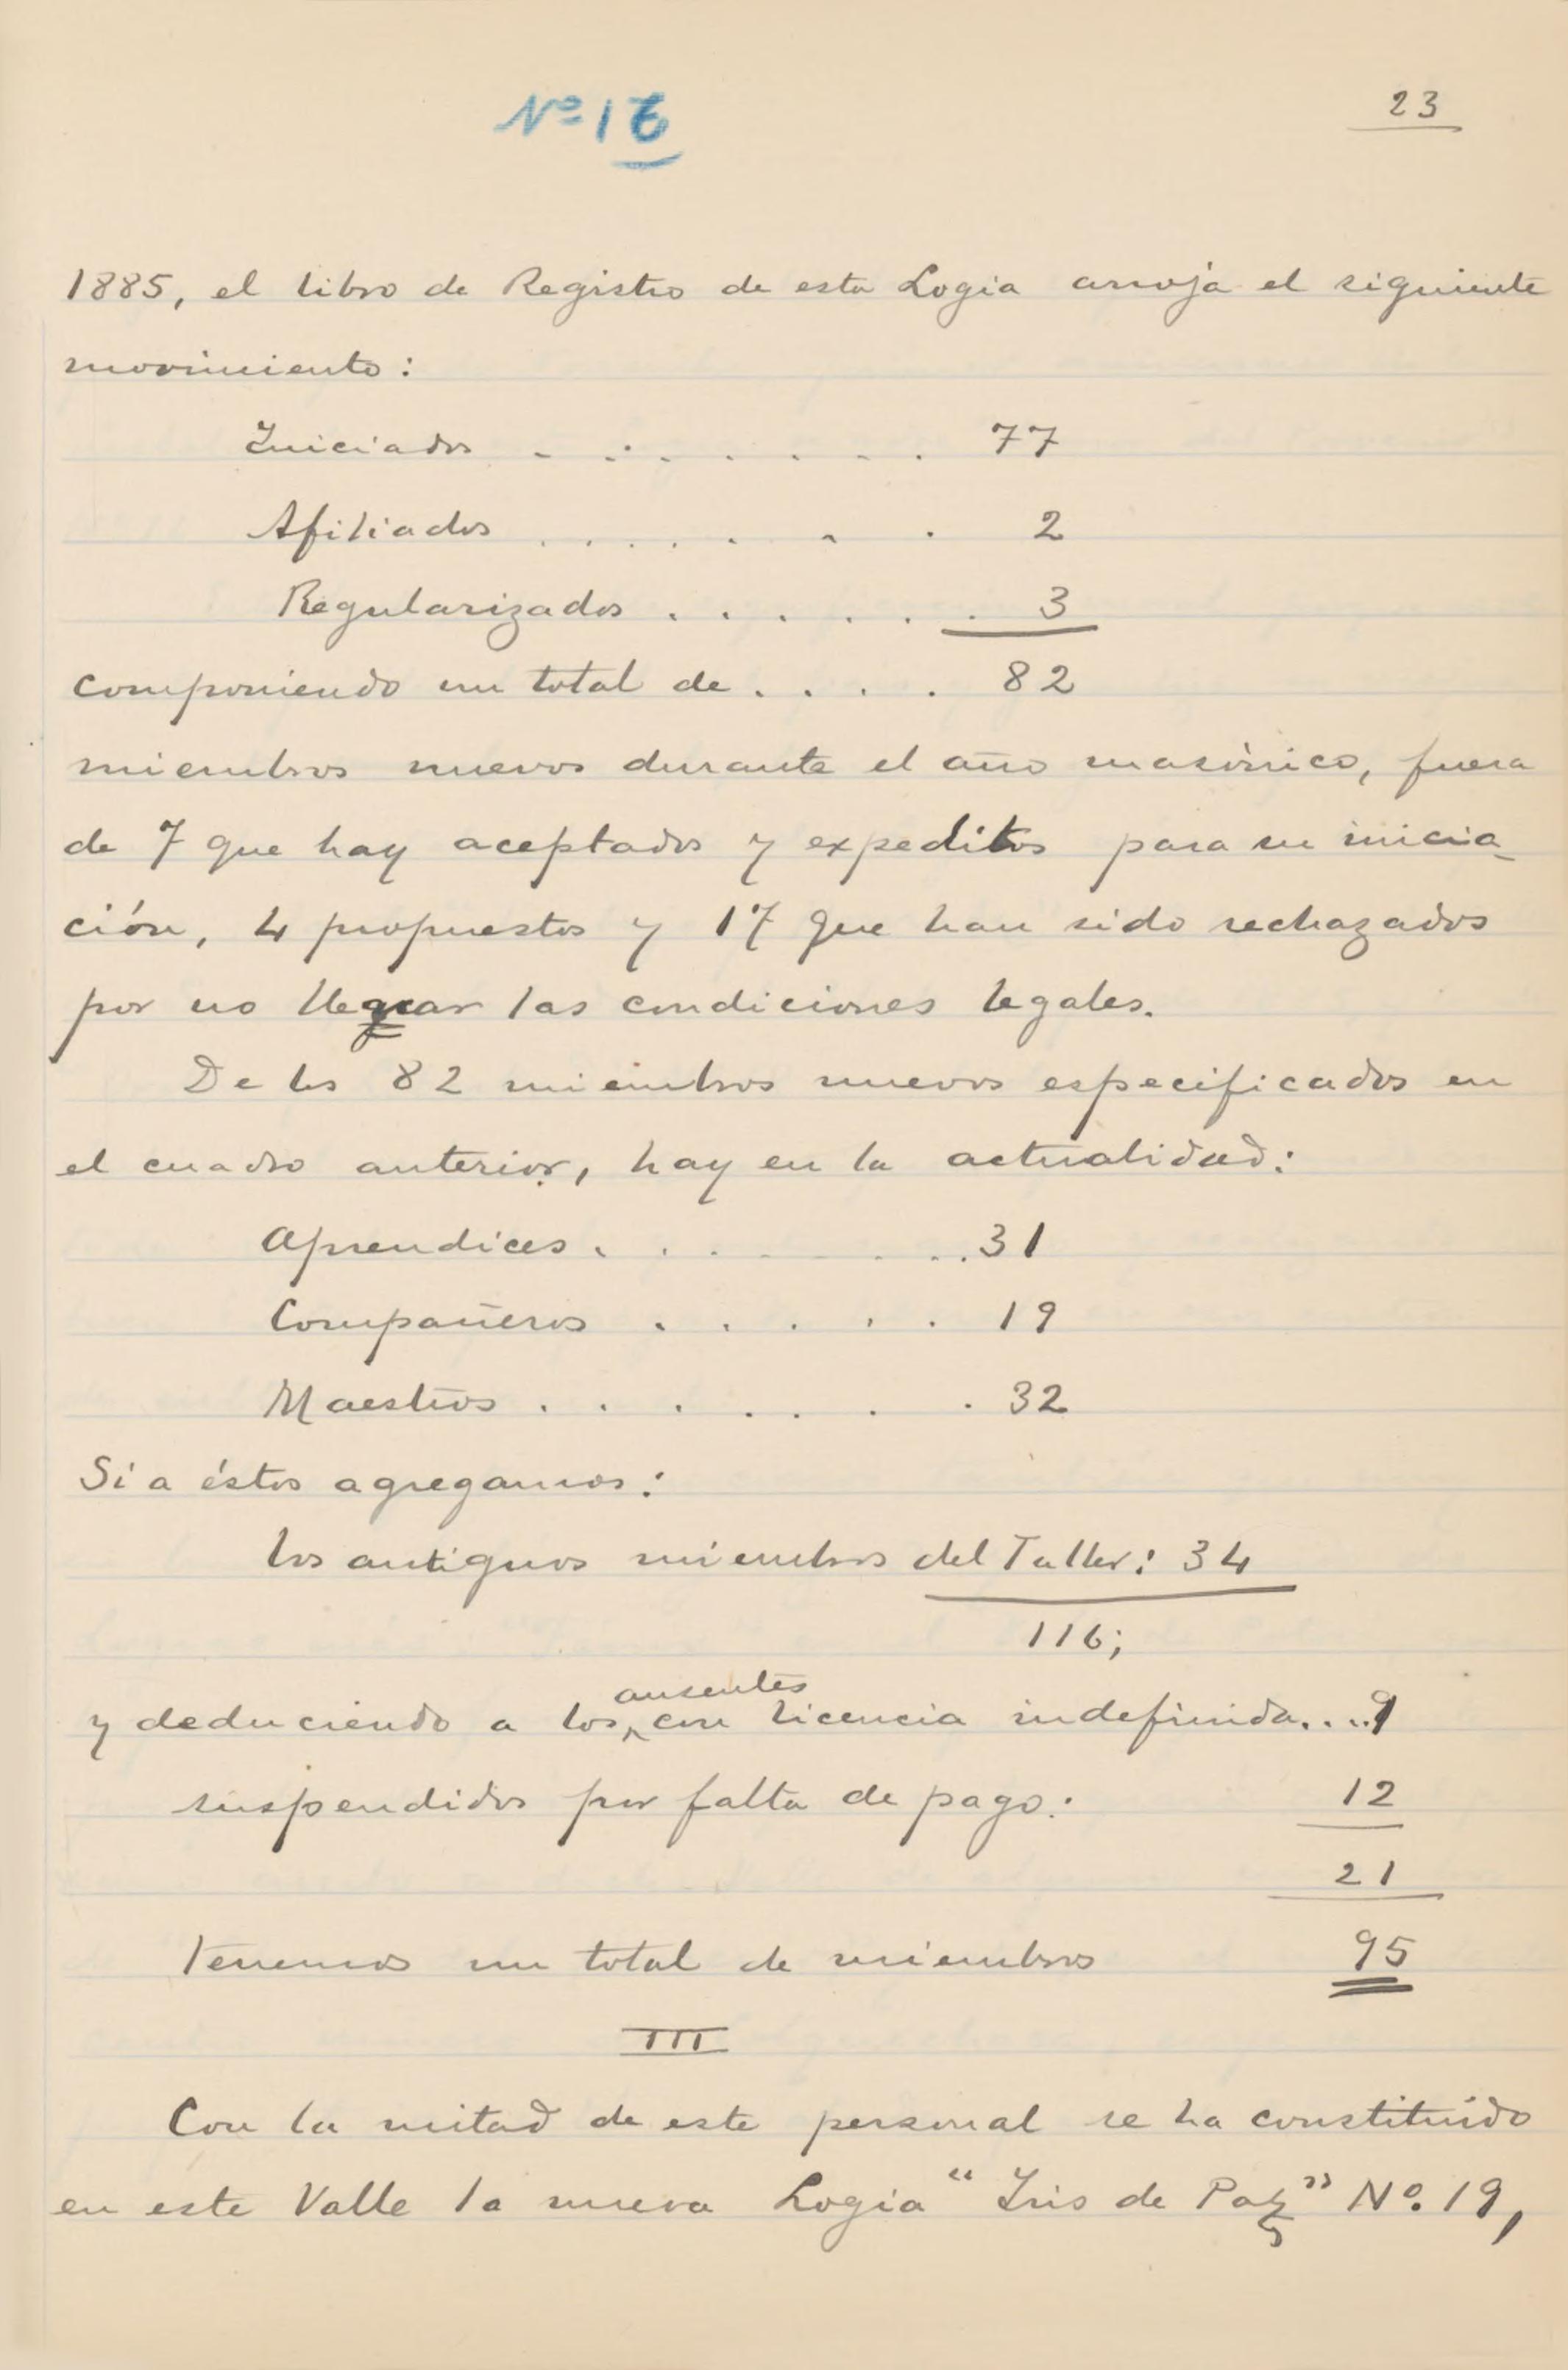 Nº 16
23
1885, el libro de Registro de esta Logia arroja el siguiente
movimiento:
Iniciados . . . . . . . 77
Afiliados . . . . . . . 2
Regularizados . . . . . . 3
componiendo un total de . . . . 82
miembros nuevos durante el año masónico, fuera
de 7 que hay aceptados y expeditos para su inicia-
ción, 4 propuestos y 17 que han sido rechazados
por no llegar las condiciones legales.
De los 82 miembros nuevos especificados en
el cuadro anterior, hay en la actualidad:
Aprendices . . . . . . 31
Compañeros . . . . . 19
Maestros . . . . . . . 32
Si a éstos agregamos:
los antiguos miembros del Taller: 34
116;
y deduciendo a los ausentes con licencia indefinida.... 9
suspendidos por falta de pago: 12
21
Tenemos un total de miembros 95
III
Con la mitad de este personal se ha constituído
en este Valle la nueva Logia "Iris de Paz" Nº. 19,